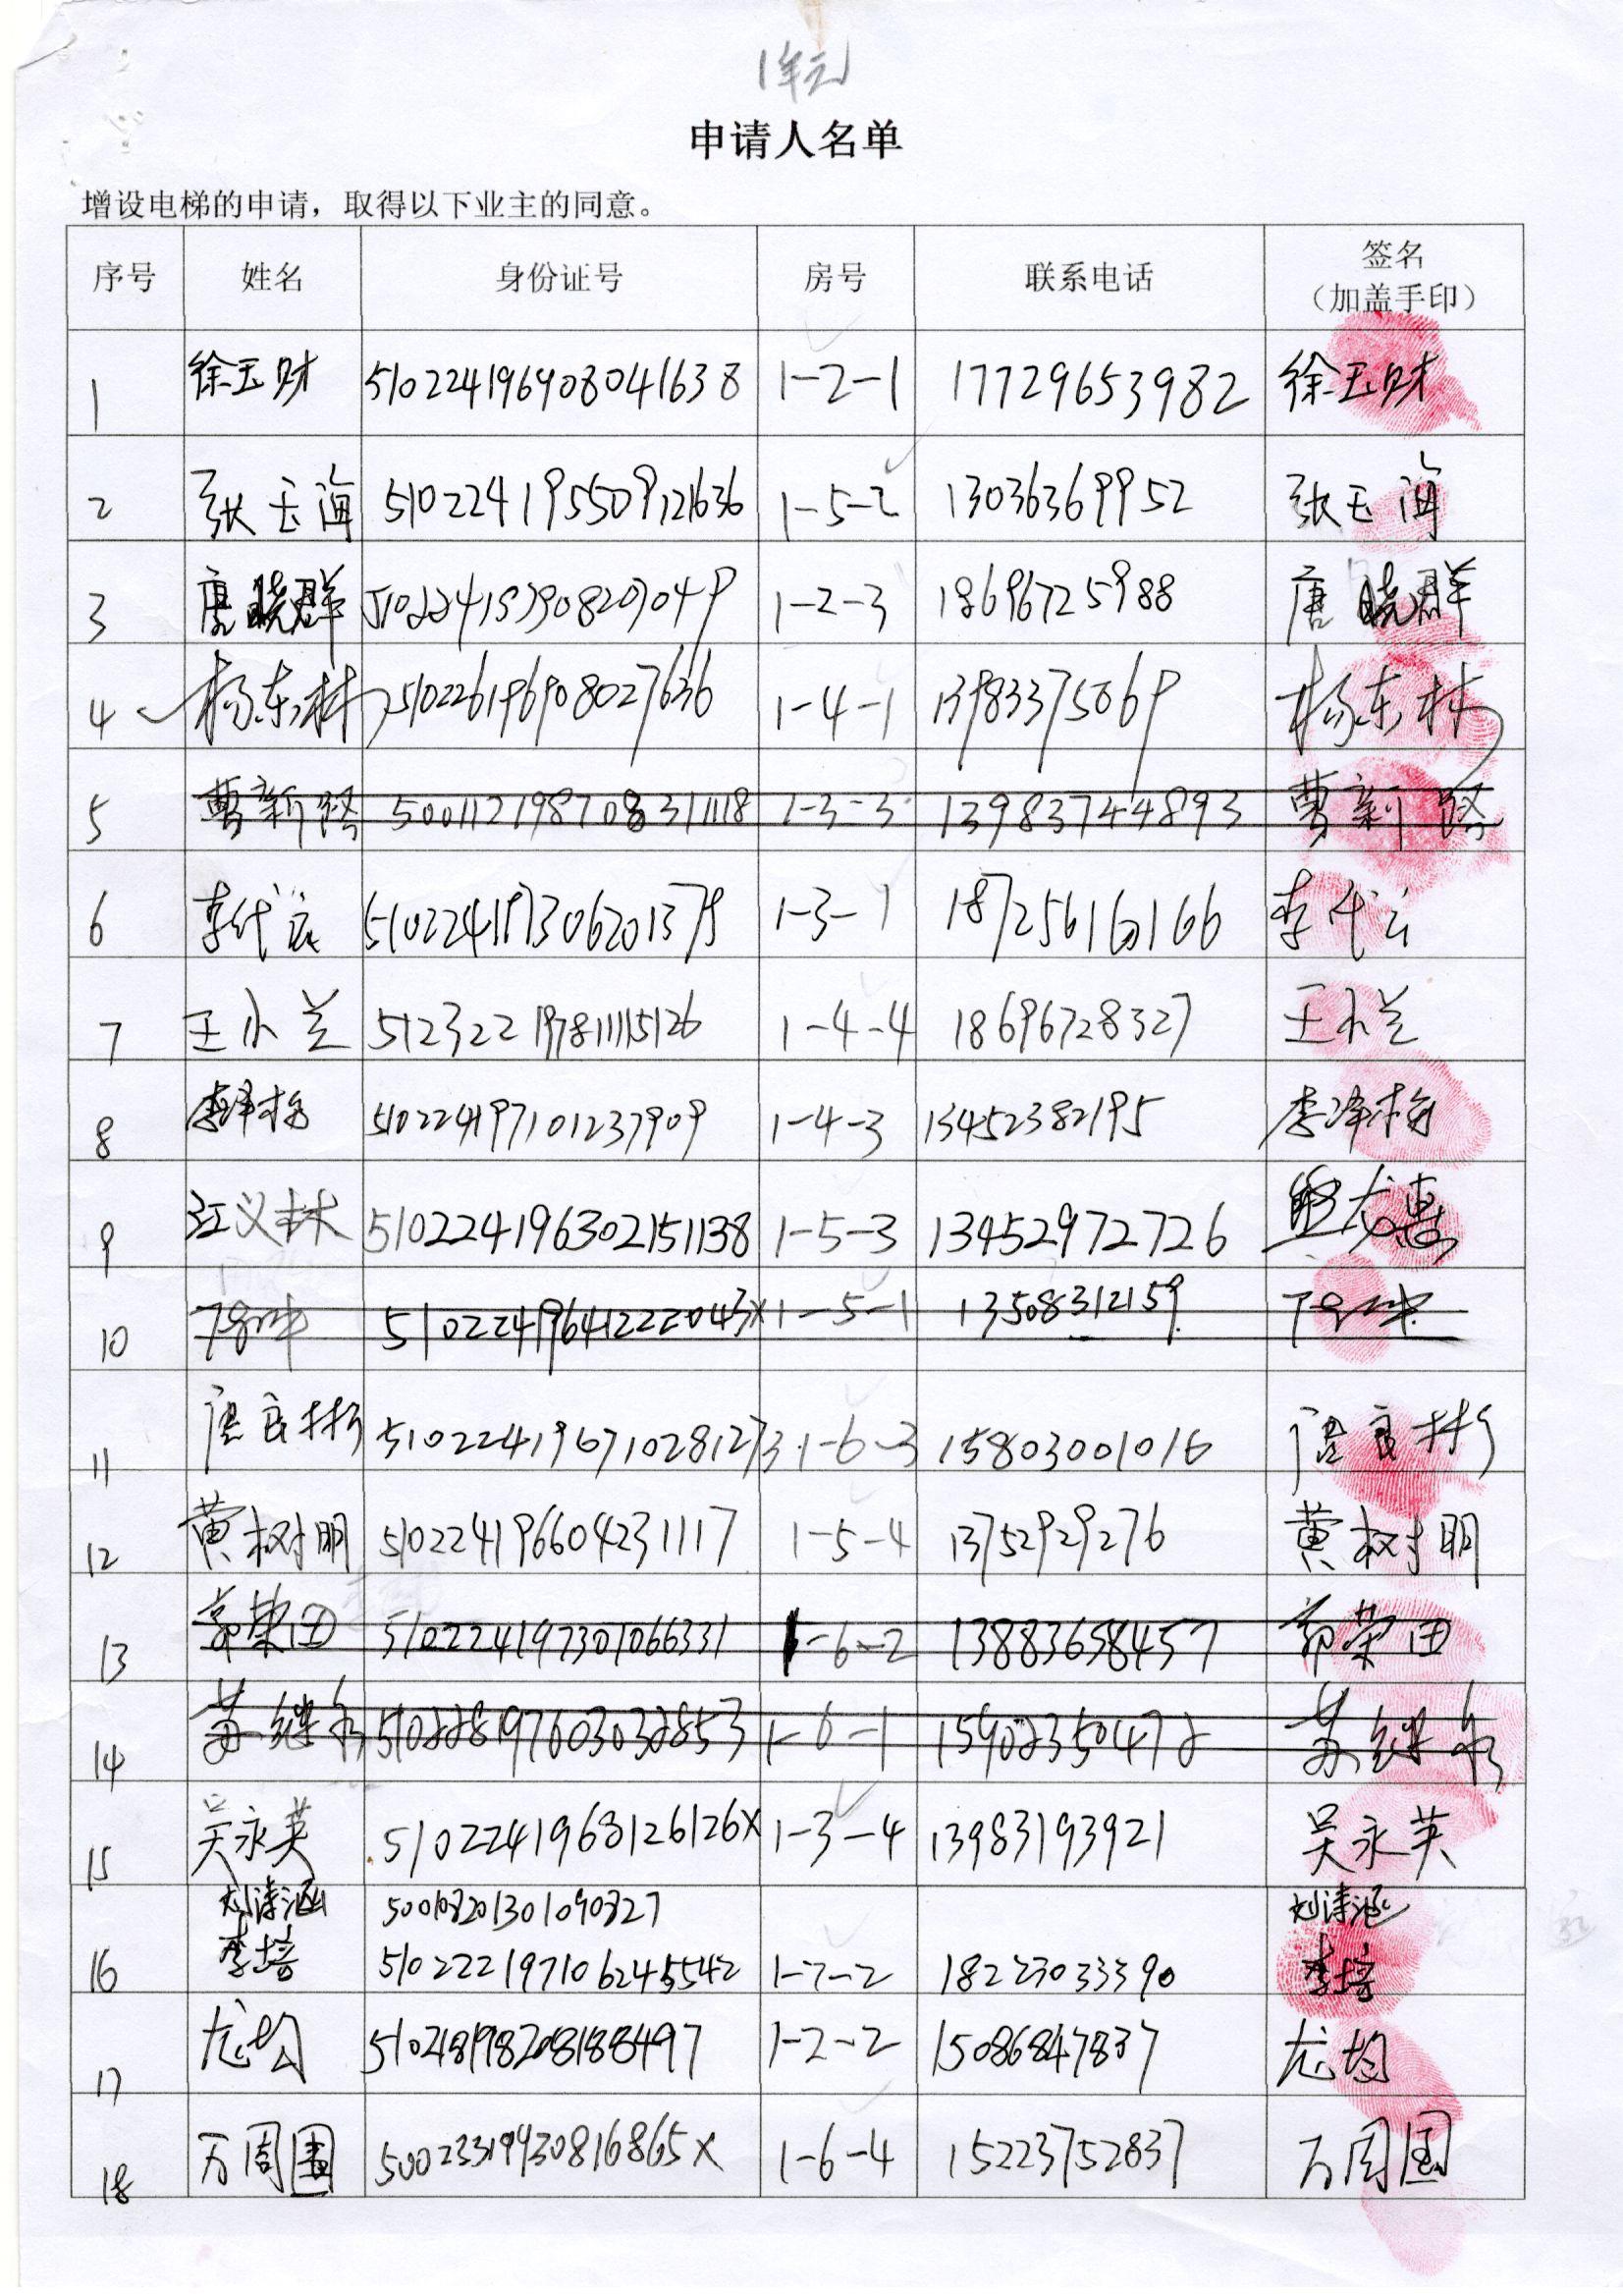 1单元
申请人名单
增设电梯的申请，取得以下业主的同意。
序号 姓名 身份证号 房号 联系电话 签名（加盖手印）
1 徐玉财 510224196908041638 1-2-1 17729653982 徐玉财
2 张玉海 510224195509121636 1-5-2 13036369952 张玉海
3 唐晓群 1-2-3 18696725988 唐晓群
4 杨东林 510226196908027636 1-4-1 13983375069 杨东林
5 曹新路 500112198708311118 1-3-3 13983744893 曹新路
6 李代云 510224197306201379 1-3-1 李代云
7 王小兰 512322197811115126 1-4-4 18696728327 王小兰
8 李泽梅 510224197101237909 1-4-3 13452382195 李泽梅
9 江义林 510224196302151138 1-5-3 13452972726
10 51022419641222043X 1-5-1 13508312159
11 唐良彬 510224196710281273 1-6-3 15803001016 唐良彬
12 黄树明 510224196604231117 1-5-4 13752929276 黄树明
13 郭荣田 510224197301066331 1-6-2 13883658457 郭荣田
14 510228197603032853 1-6-1 15902350472
15 吴永英 5102241968126126X 1-3-4 13983193921 吴永英
刘涛涵 500108201301090827 刘涛涵
16 李培 510222197106245542 1-7-2 18223033390 李培
17 龙均 1-2-2 15086847837 龙均
18 万周围 50023319930816865X 1-6-4 15223752837 万周围